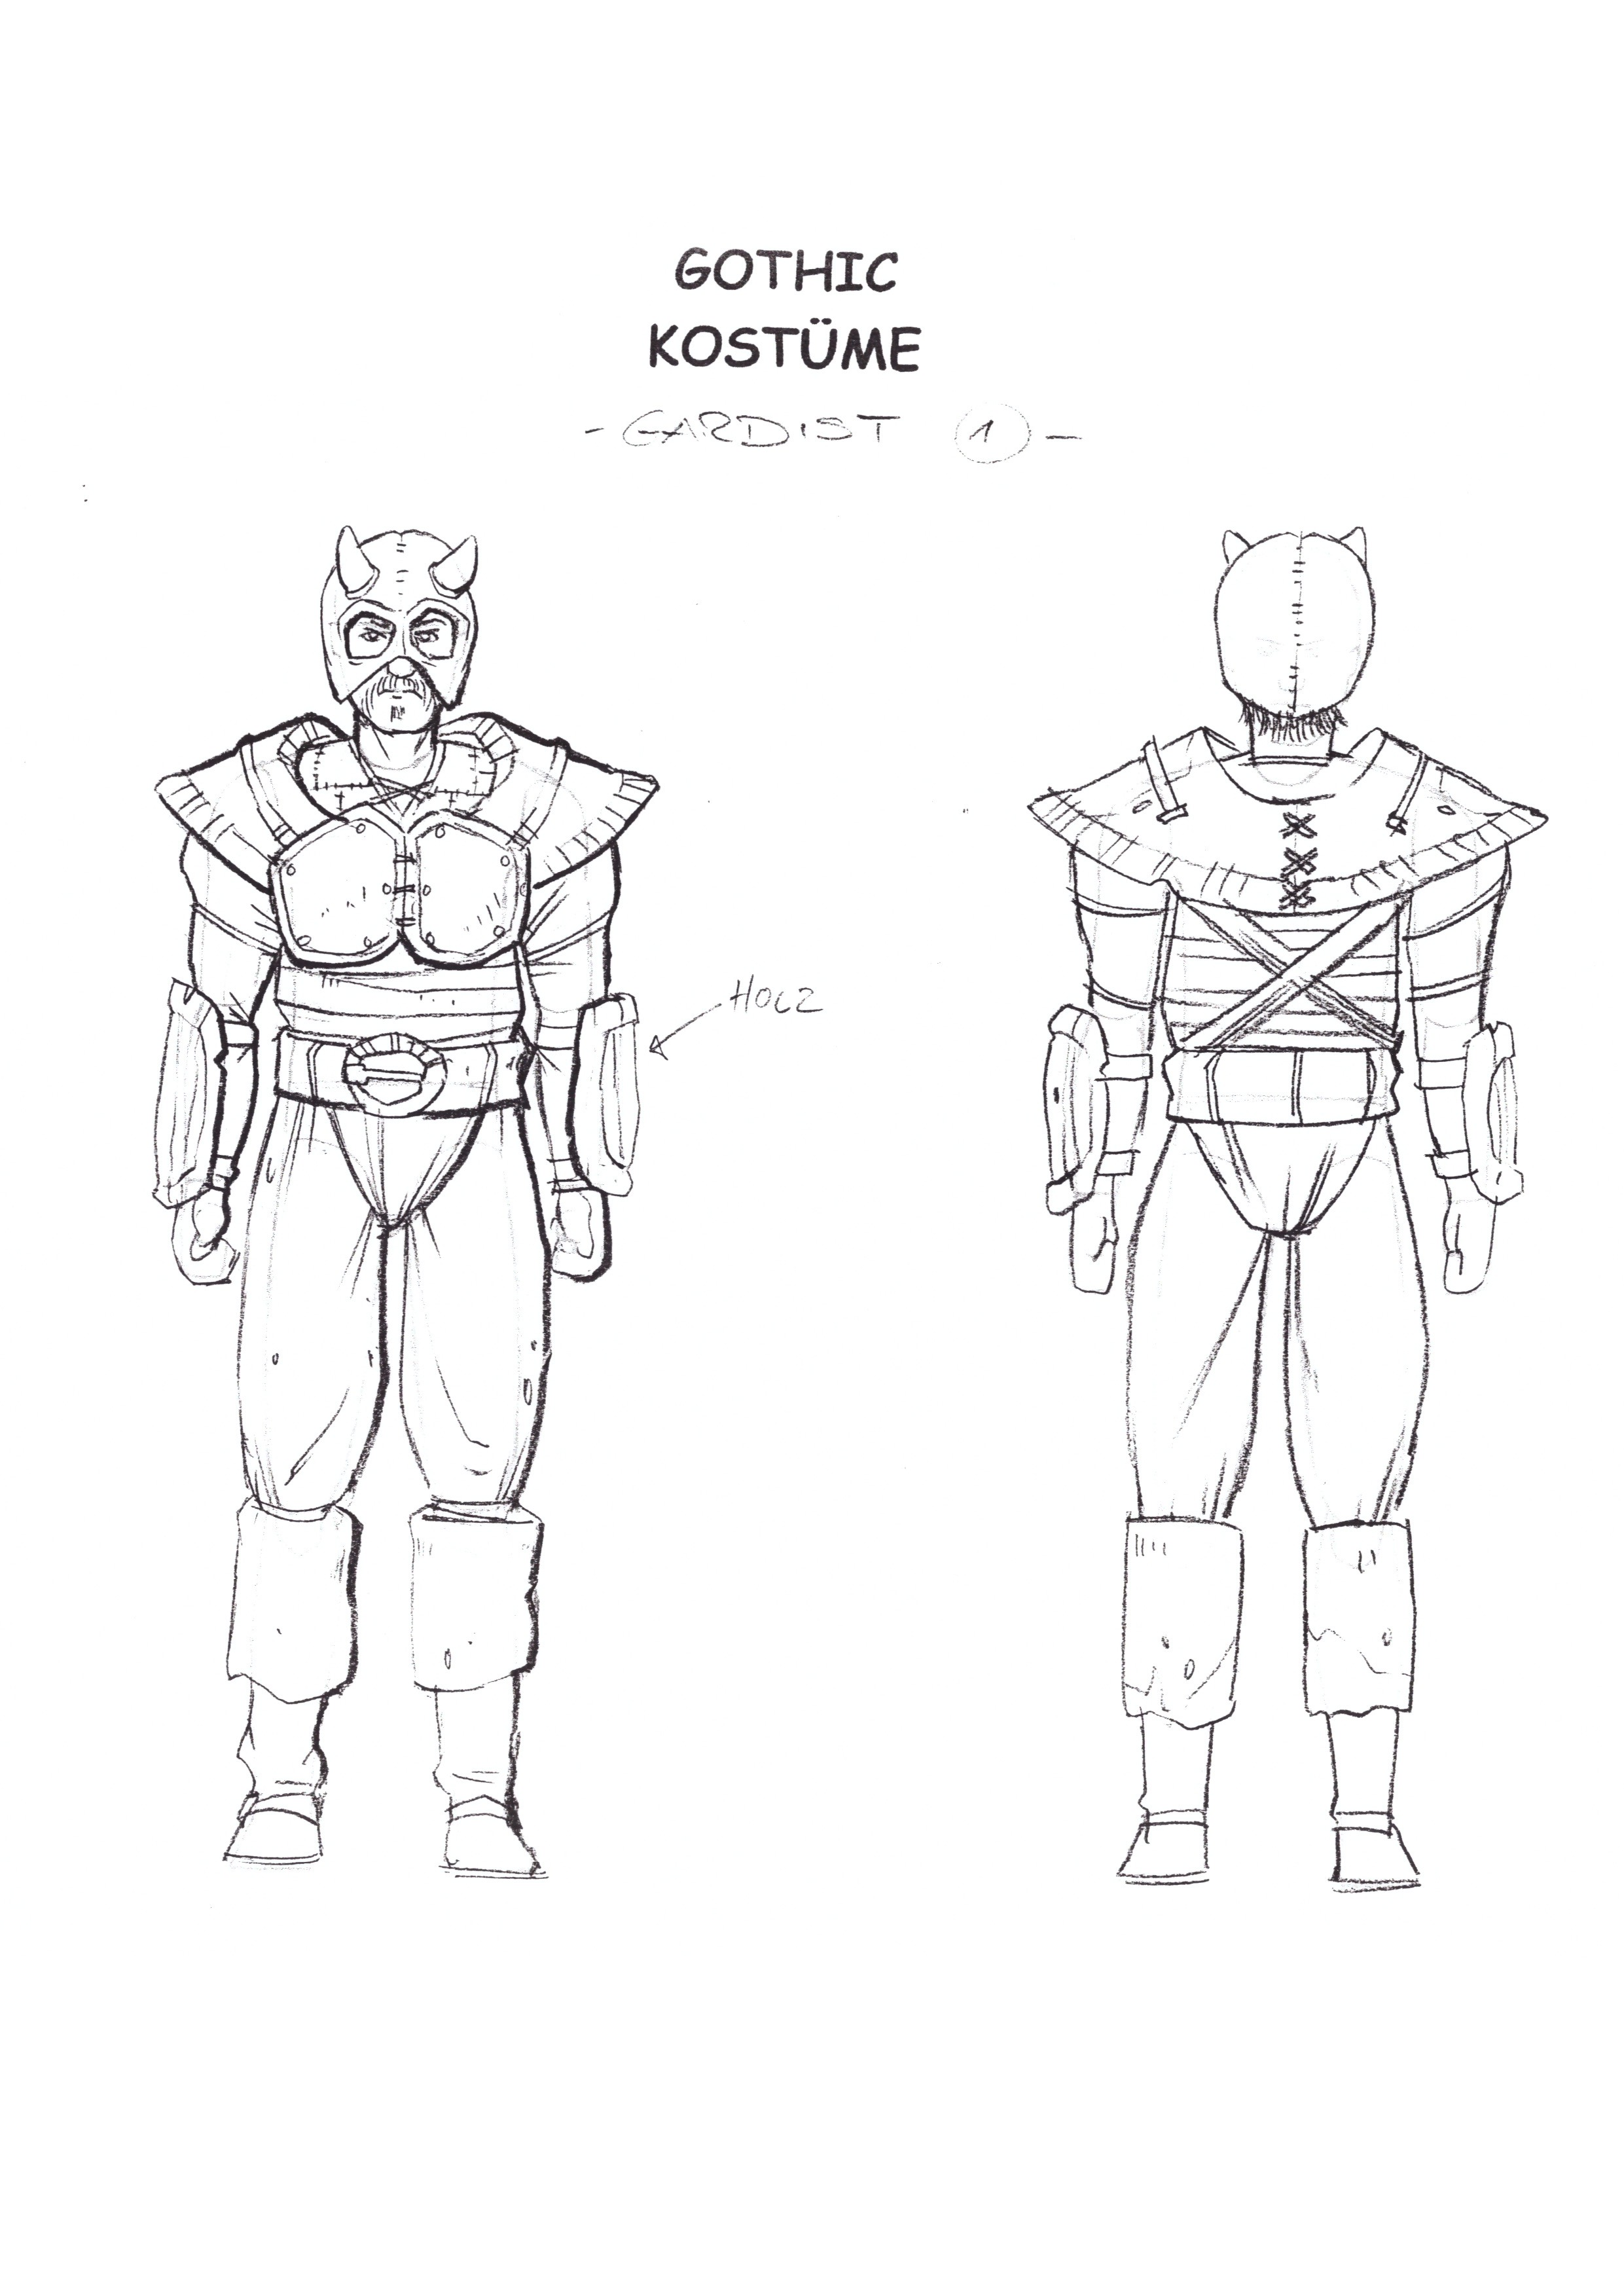 GOTHIC
KOSTÜME
- GARDIST 1 -
HOLZ